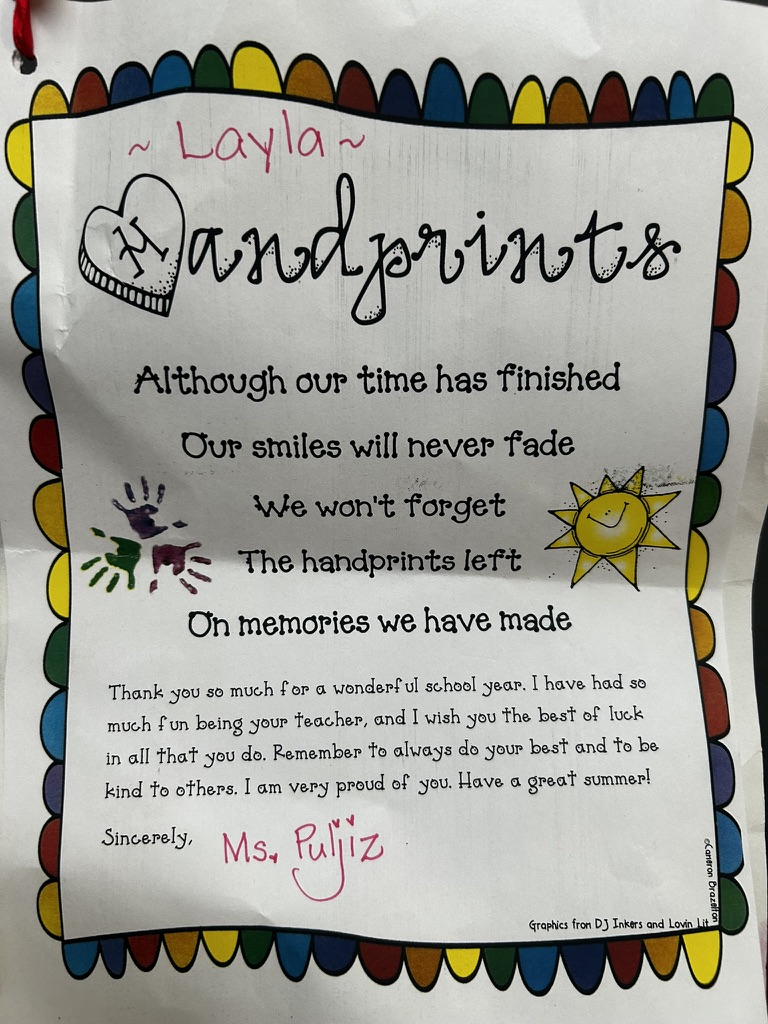 ~ Layla ~
Handprints
Although our time has finished
Our smiles will never fade
We won't forget
The handprints left
On memories we have made
Thank you so much for a wonderful school year. I have had so
much fun being your teacher, and I wish you the best of luck
in all that you do. Remember to always do your best and to be
kind to others. I am very proud of you. Have a great summer!
Sincerely,
Ms. Puljiz
©Cameron Brazelton
Graphics from DJ Inkers and Lovin Lit